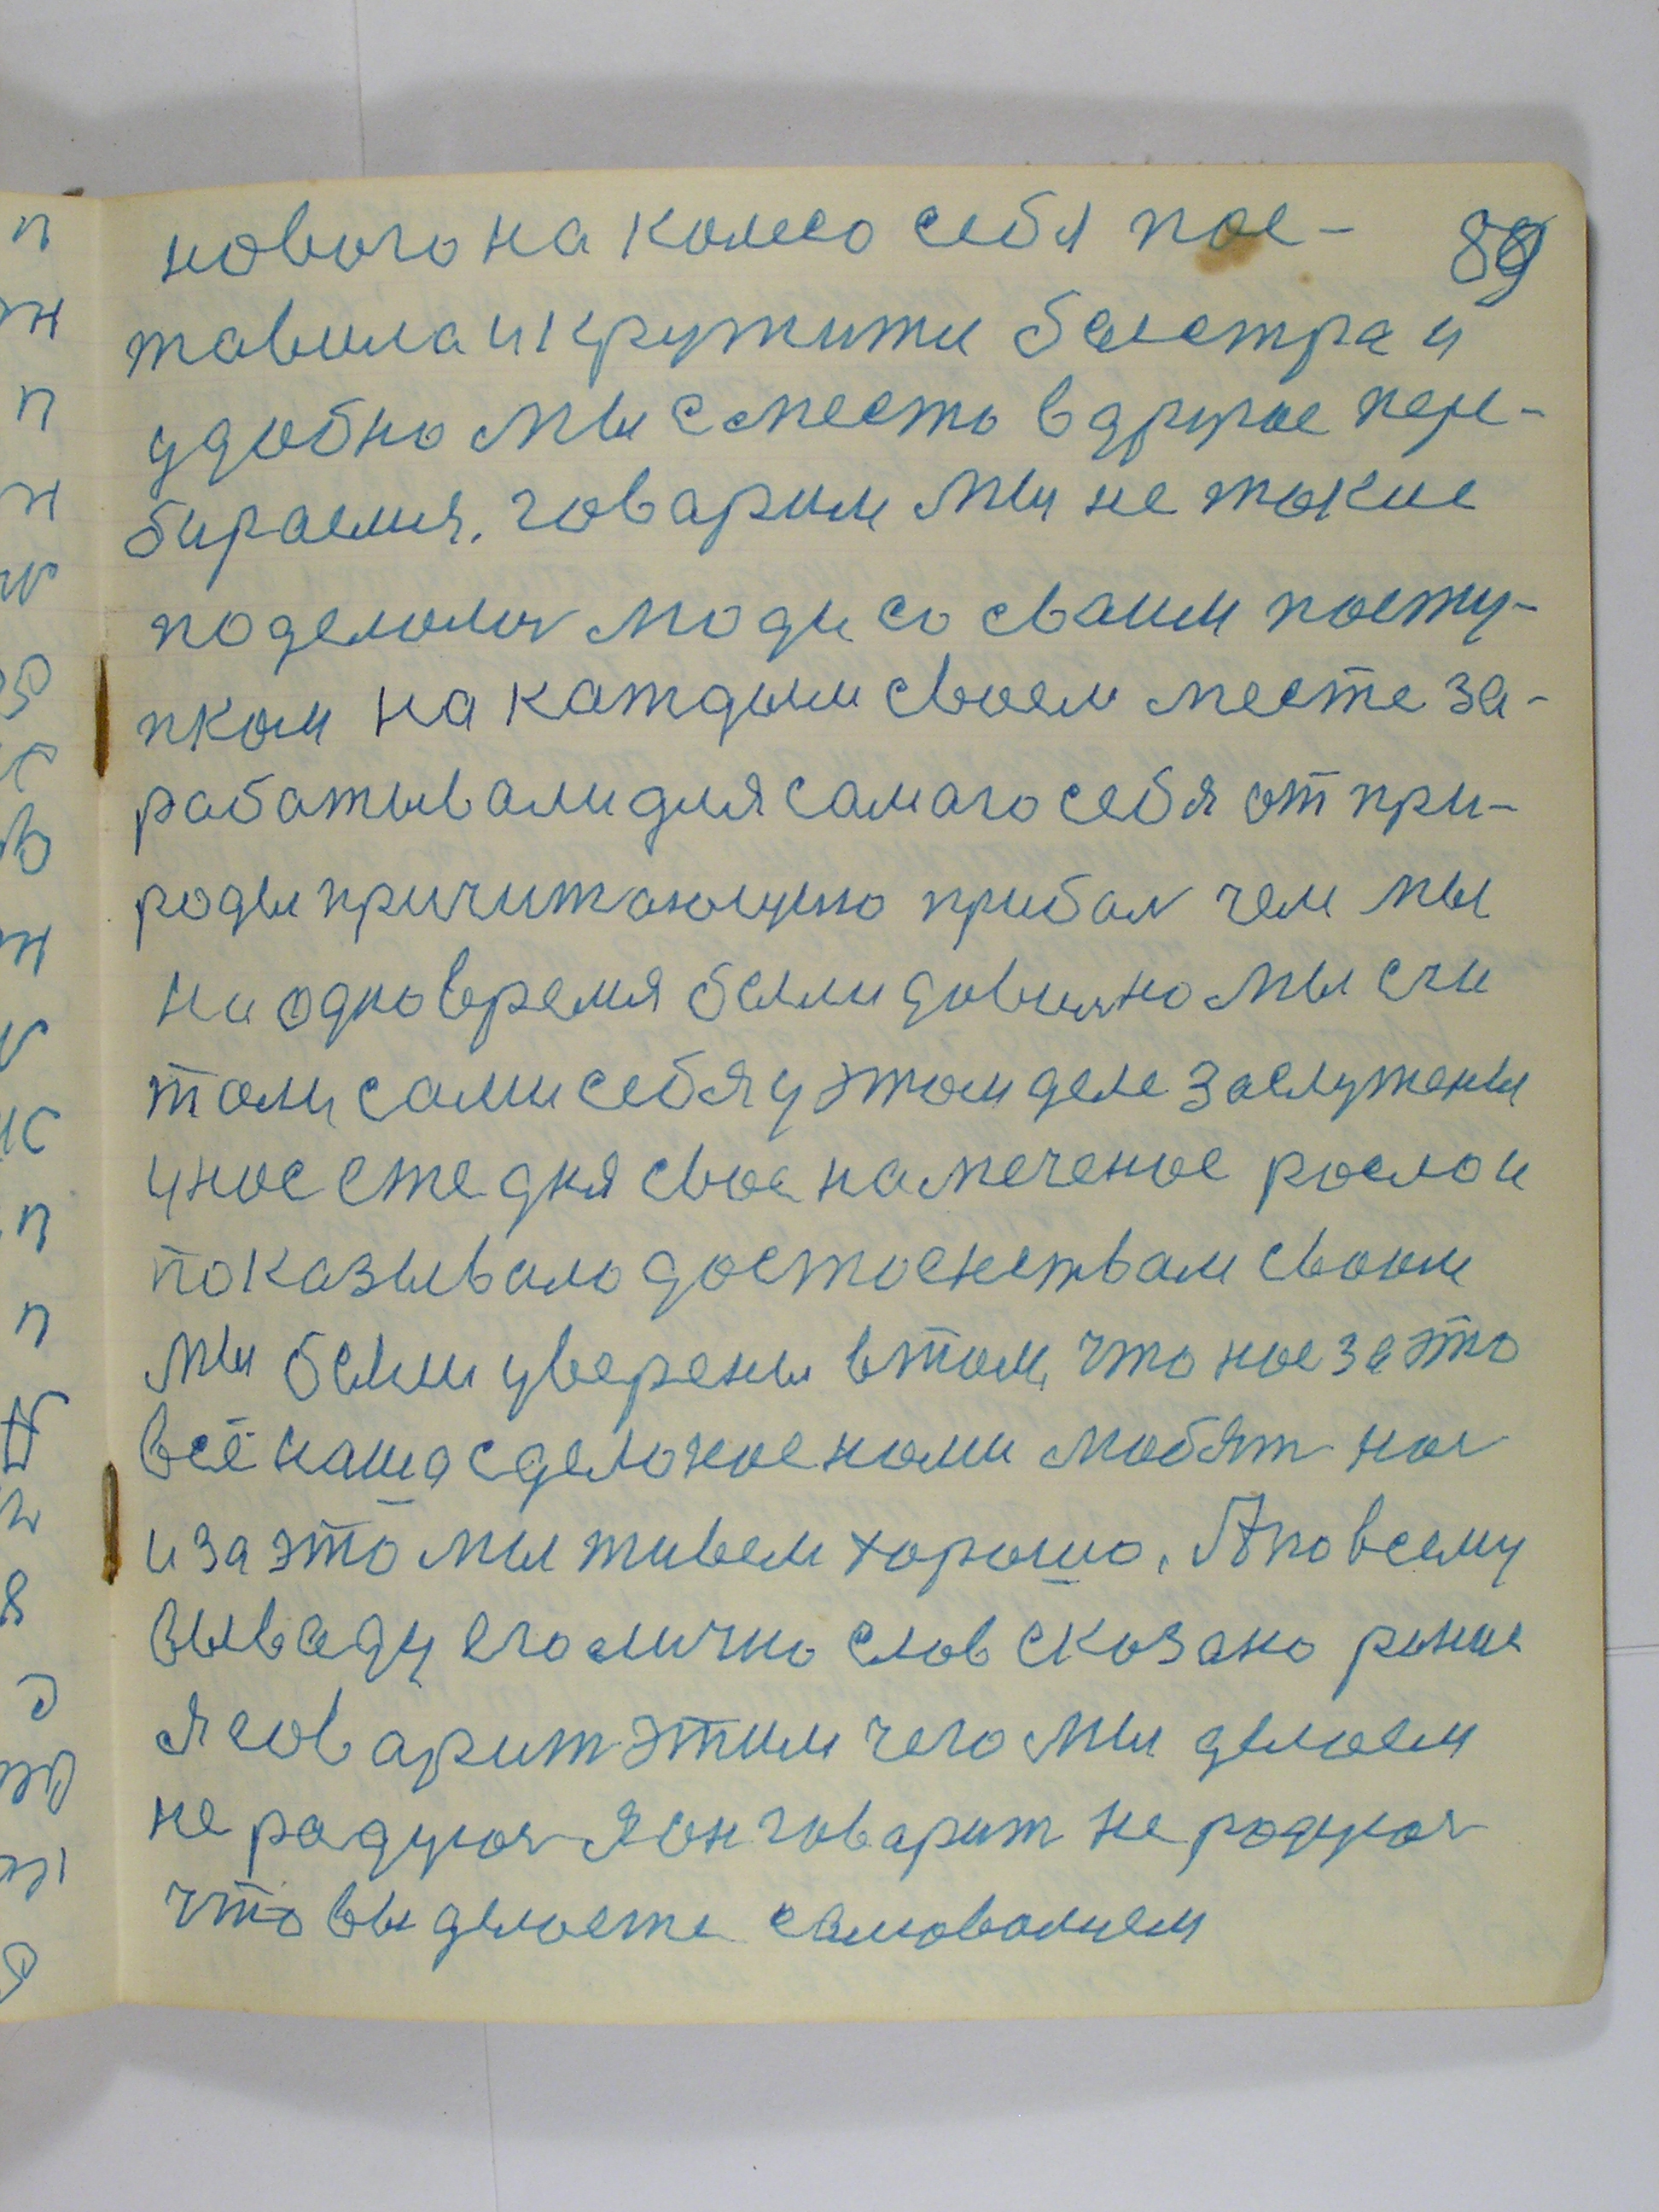 нового на колесо себя пос- 89
тавила и кружити быстра и
удобно мы с место в другое пере-
бираемся. говарим мы не такие
поделолися люди со сваим посту-
пком на каждым своем месте за-
рабатывали для самаго себя от при-
роды причитающую прибал чем мы
на одно время были довилно мы счи
тали сами себя у этом деле заслужены
у нас сте дня свое намеченое росло и
показывало достоенствам своим
мы были уверены в том, что нас за это
всё наша сделоное нами любят нас
и за это мы живем хорошо. А по всему
вываду его лично слов сказано ране
я говарит этим чего мы делаем
не радуюся Я он говарит не радуюся
что вы делаете самоволием